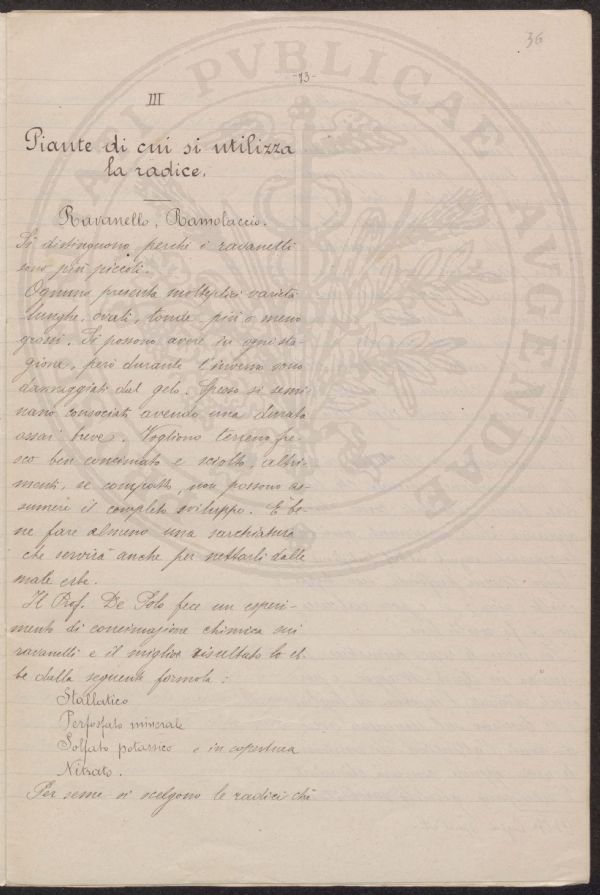 36
-73-
III
Piante di cui si utilizza
la radice.
Ravanello, Ramolaccio.
Si distinguono perchè i ravanelli
sono più piccoli.
Ognuno presenta molteplici varietà
lunghe, ovali, tonde più o meno
grossi. Si possono avere in ogni sta-
gione, però durante l'inverno sono
danneggiati dal gelo. Spesso si semi-
nano consociati avendo una durata
assai breve. Vogliono terreno fre-
sco ben concimato e sciolto, altri-
menti, se compatto, non possono as-
sumere il completo sviluppo. È be-
ne fare almeno una sarchiatura
che servirà anche per nettarli dalle
male erbe.
Il Prof. De Polo fece un esperi-
mento di concimazione chimica sui
ravanelli e il miglior risultato lo eb-
be dalla seguente formola:
Stallatico
Perfosfato minerale
Solfato potassico e in copertura
Nitrato.
Per seme si scelgono le radici che
PVBLICAE AVGENDAE